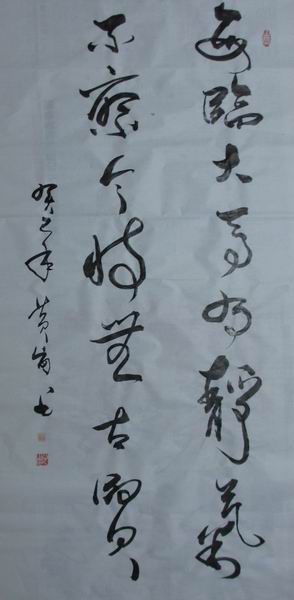 每臨大事有靜氣
不今時無古賢
癸巳年黄书